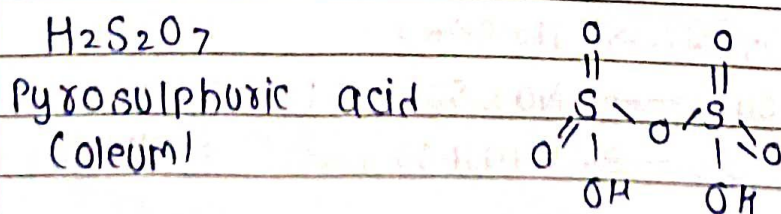 H2S2O7
Pyrosulphuric acid
(oleum)
O O
S S
O O O
OH OH